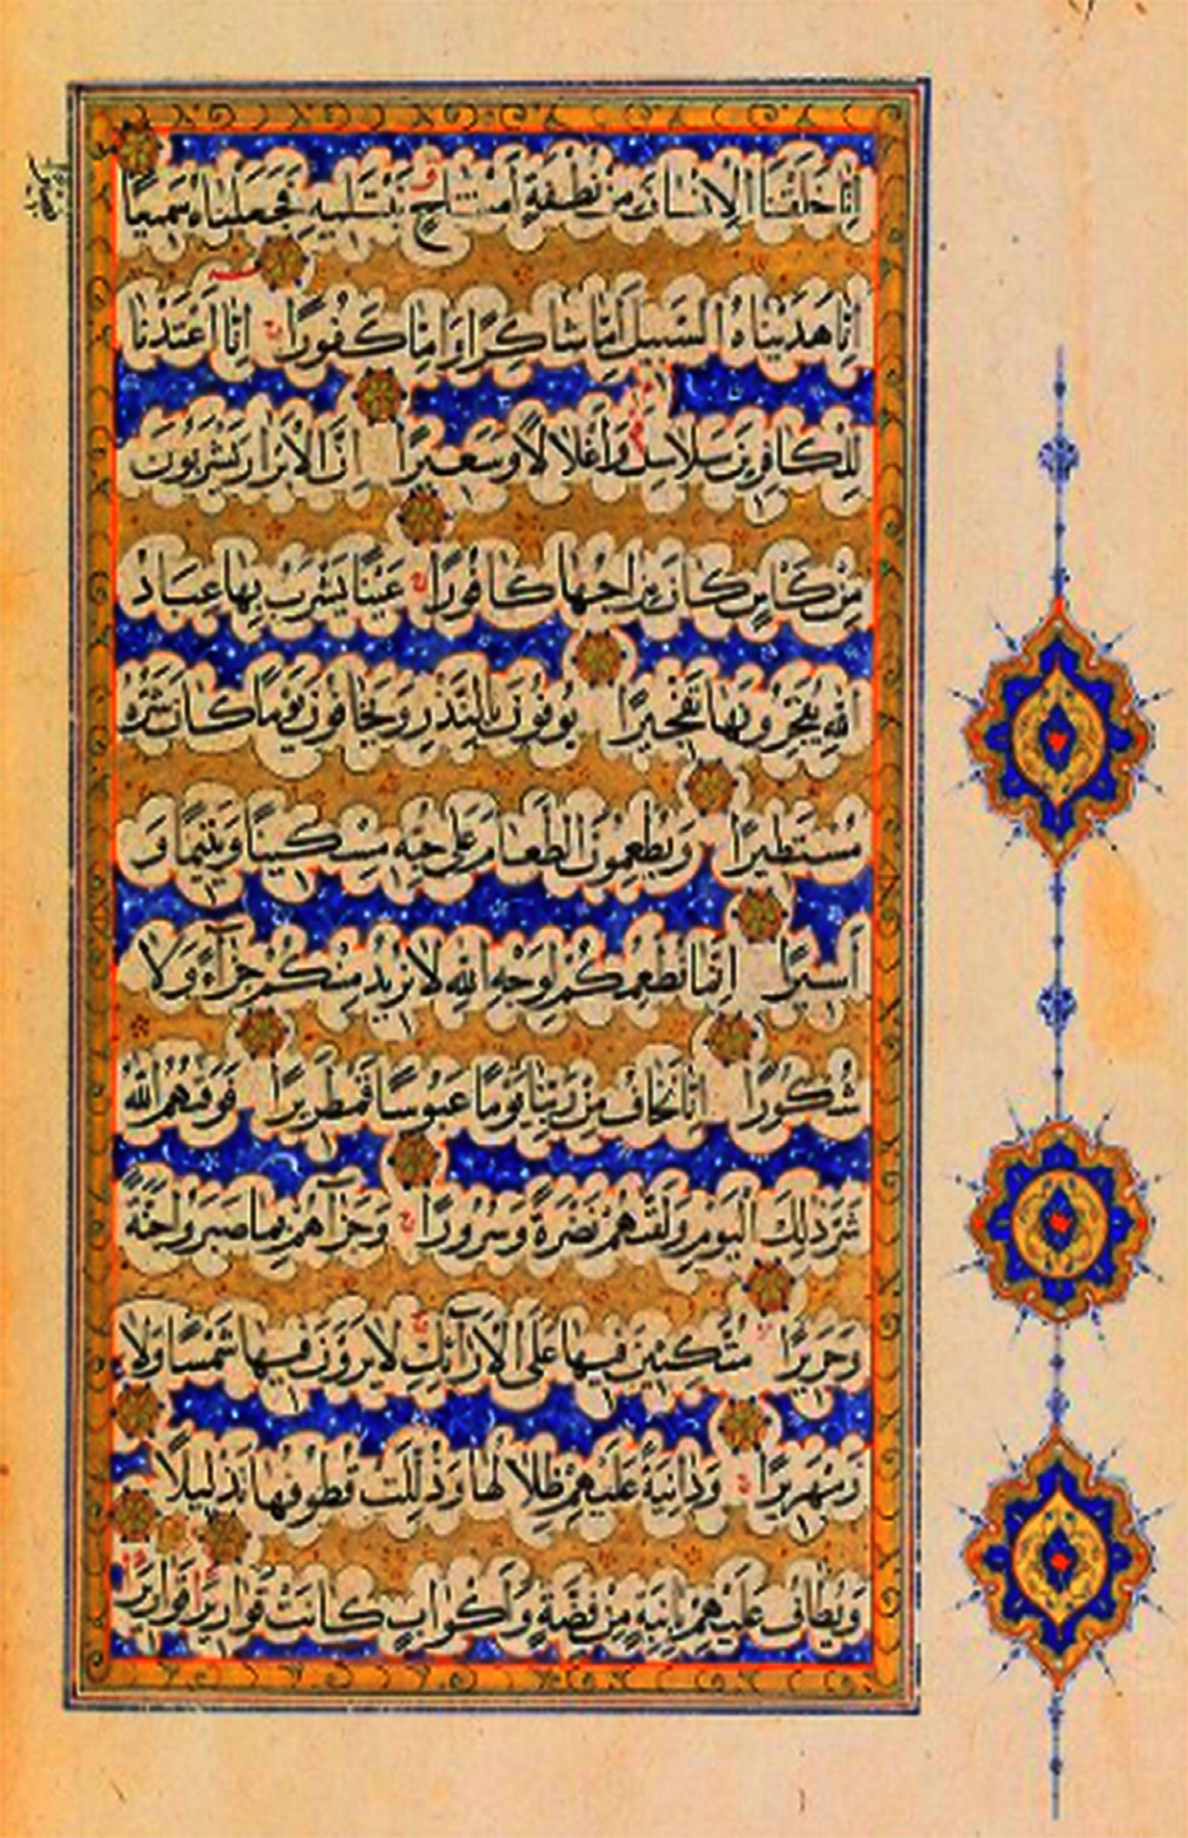 اِنَّا خَلَقْنَا الْاِنْسَانَ مِنْ نُطْفَةٍ اَمْشَاجٍ نَبْتَلِيهِ فَجَعَلْنَاهُ سَمِيعًا
اِنَّا هَدَيْنَاهُ السَّبِيلَ اِمَّا شَاكِرًا وَاِمَّا كَفُورًا اِنَّا اَعْتَدْنَا
لِلْكَافِرِينَ سَلَاسِلَ وَاَغْلَالًا وَسَعِيرًا اِنَّ الْاَبْرَارَ يَشْرَبُونَ
مِنْ كَأْسٍ كَانَ مِزَاجُهَا كَافُورًا عَيْنًا يَشْرَبُ بِهَا عِبَادُ
اللّٰهِ يُفَجِّرُونَهَا تَفْجِيرًا يُوفُونَ بِالنَّذْرِ وَيَخَافُونَ يَوْمًا كَانَ شَرُّهُ
مُسْتَطِيرًا وَيُطْعِمُونَ الطَّعَامَ عَلَى حُبِّهِ مِسْكِينًا وَيَتِيمًا وَ
اَسِيرًا اِنَّمَا نُطْعِمُكُمْ لِوَجْهِ اللّٰهِ لَا نُرِيدُ مِنْكُمْ جَزَآءً وَلَا
شُكُورًا اِنَّا نَخَافُ مِنْ رَبِّنَا يَوْمًا عَبُوسًا قَمْطَرِيرًا فَوَقٰهُمُ اللّٰهُ
شَرَّ ذٰلِكَ الْيَوْمِ وَلَقّٰهُمْ نَضْرَةً وَسُرُورًا وَجَزَاهُمْ بِمَا صَبَرُوا جَنَّةً
وَحَرِيرًا مُتَّكِئِينَ فِيهَا عَلَى الْاَرَآئِكِ لَا يَرَوْنَ فِيهَا شَمْسًا وَلَا
زَمْهَرِيرًا وَدَانِيَةً عَلَيْهِمْ ظِلَالُهَا وَذُلِّلَتْ قُطُوفُهَا تَذْلِيلًا
وَيُطَافُ عَلَيْهِمْ بِاٰنِيَةٍ مِنْ فِضَّةٍ وَاَكْوَابٍ كَانَتْ قَوَارِيرَا قَوَارِيرَا